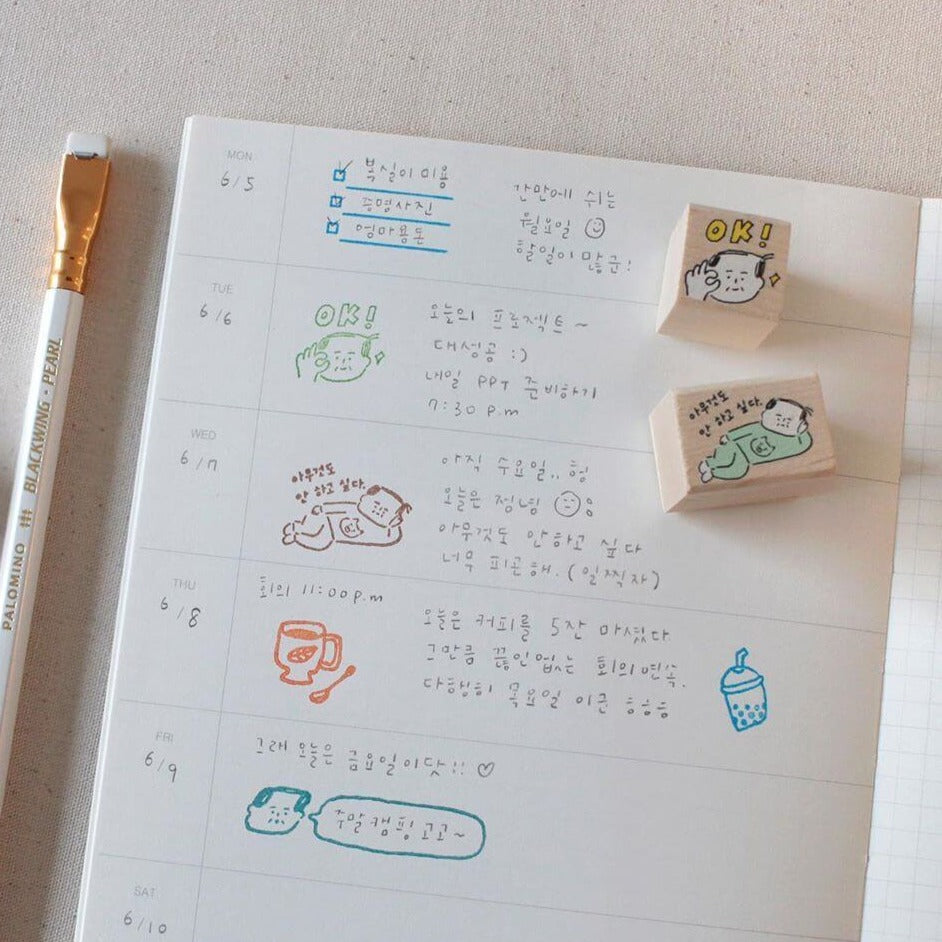 MON
6/5
복실이 미용
증명사진
엄마용돈
간만에 쉬는
월요일
할일이 많군!
OK!
TUE
6/6
OK!
오늘의 프로젝트~
대성공 :)
내일 PPT 준비하기
7:30 p.m
아무것도
안 하고 싶다.
WED
6/7
아무것도
안 하고 싶다.
아직 수요일..힝
오늘은 정녕
아무것도 안하고 싶다
너무 피곤해.(일찍자)
THU
6/8
회의 11:00 p.m
오늘은 커피를 5잔 마셨다
그만큼 끊임없는 회의연속.
다행히 목요일 이군 ㅎㅎㅎ
FRI
6/9
그래 오늘은 금요일이닷!! ♡
주말캠핑고고~
SAT
6/10
PALOMINO BLACKWING · PEARL